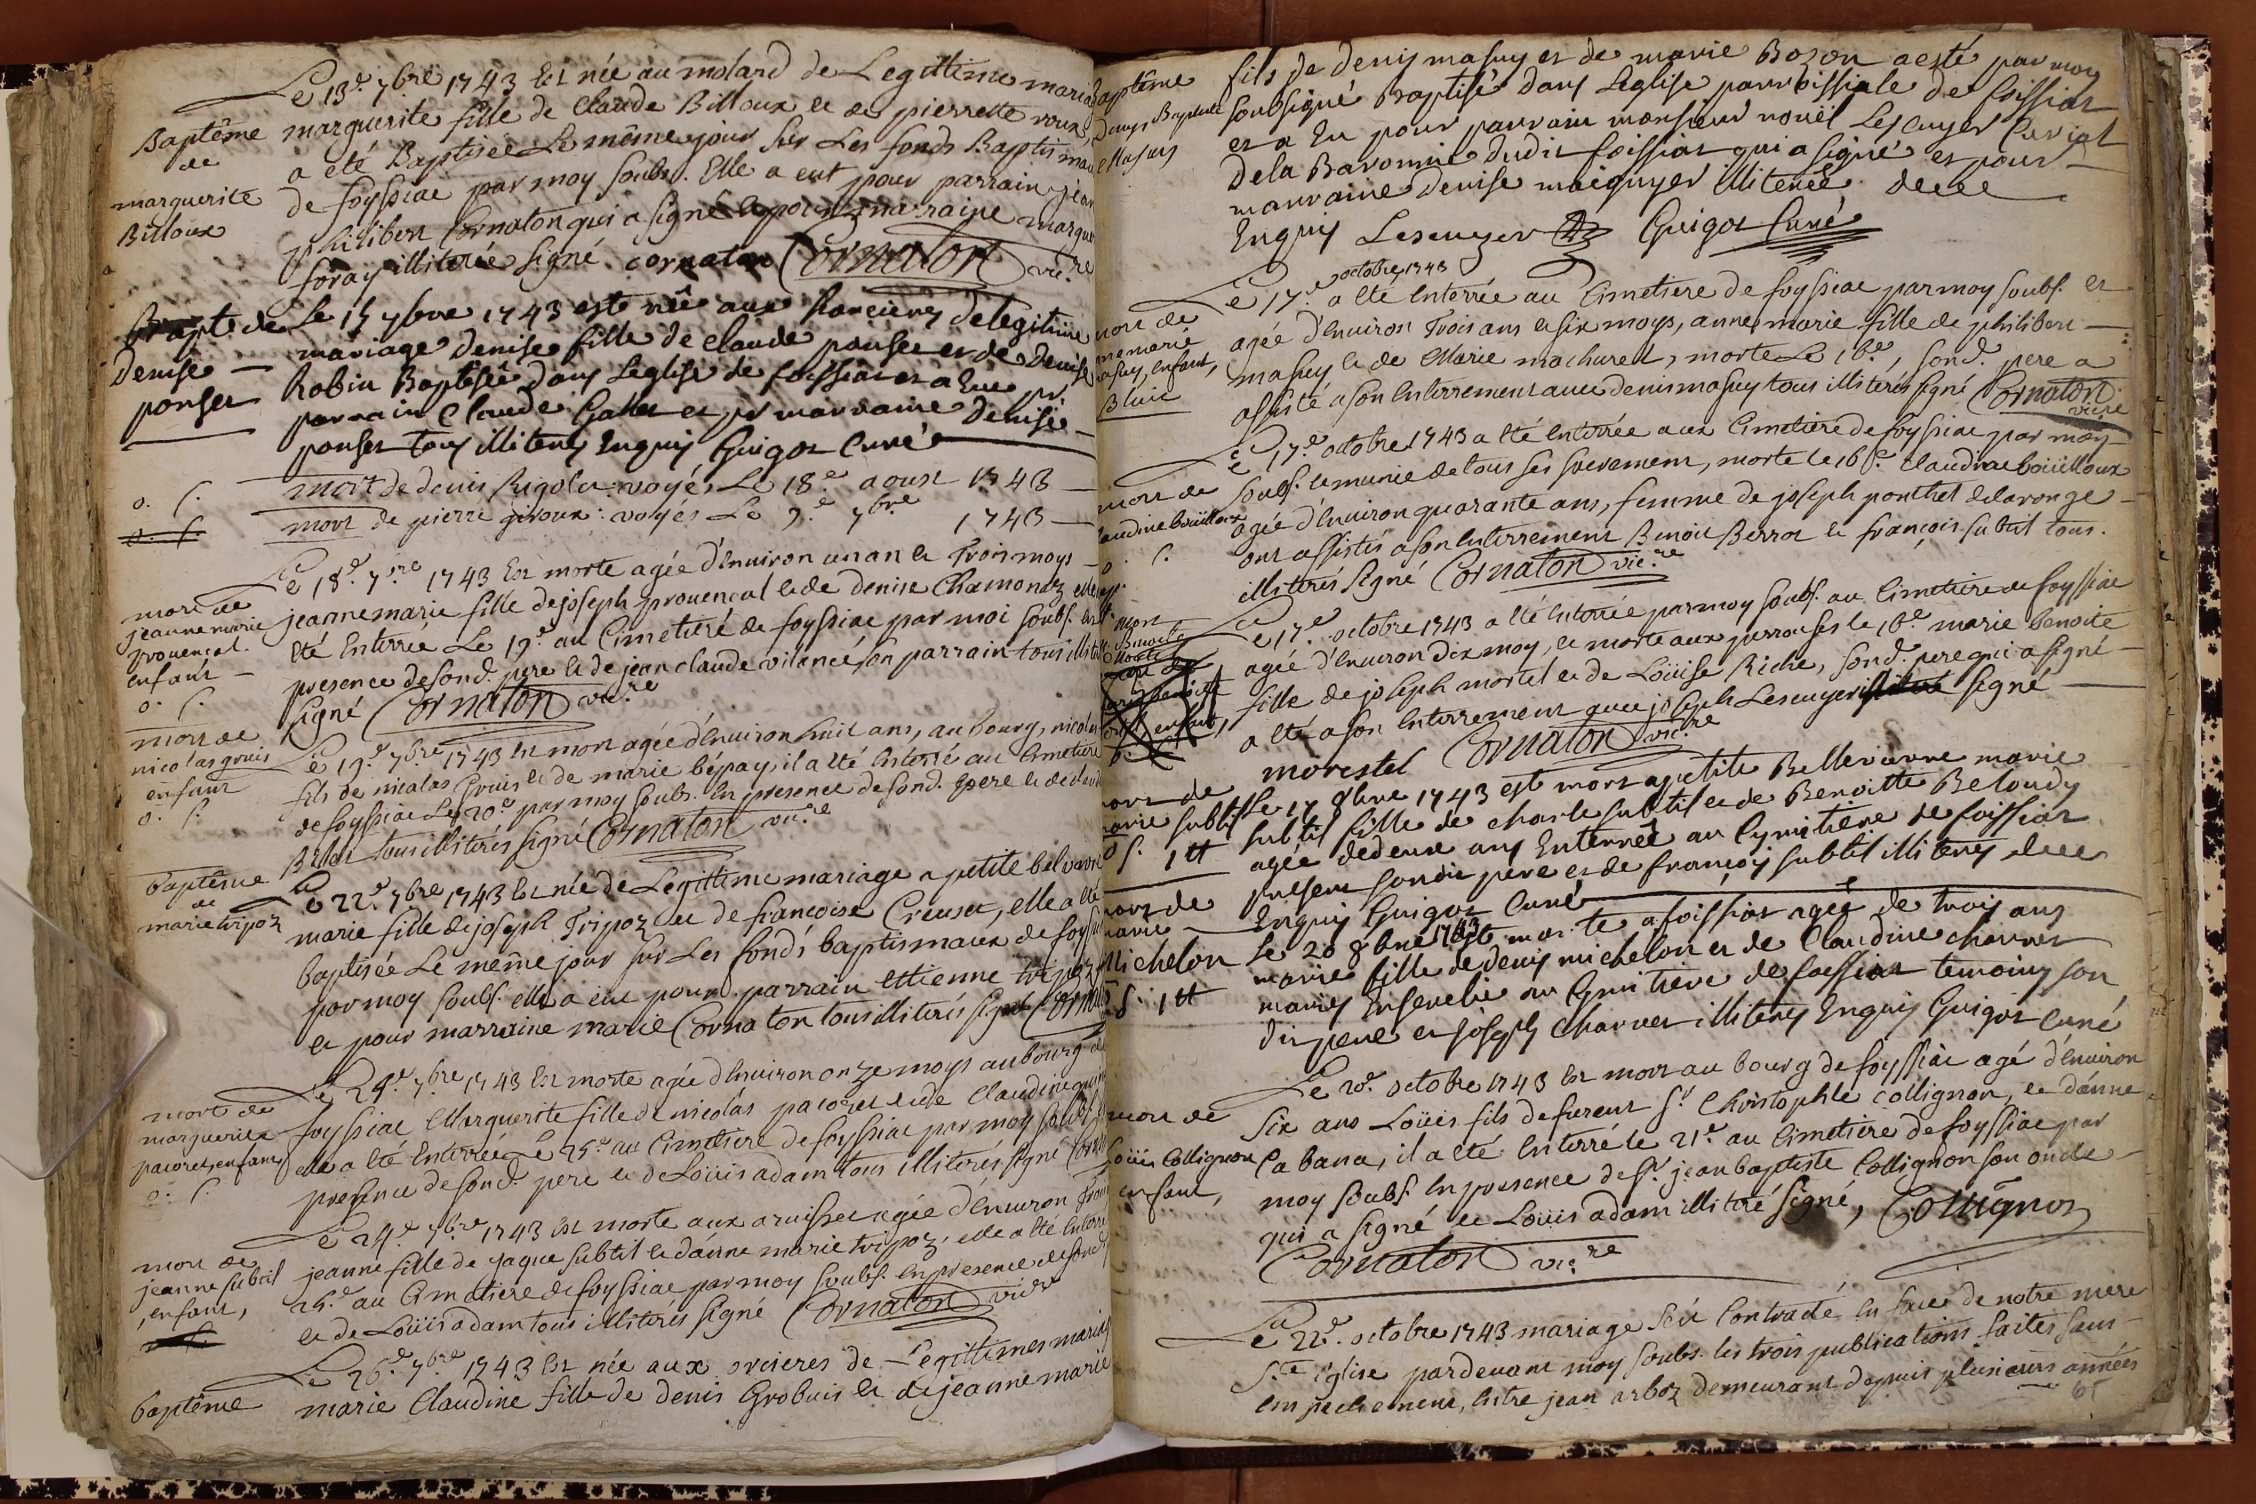 Le 13.e 7bre 1743 est née au molard de Legittime mariage
Baptême de marguerite Billoux
marguerite fille de Claude Billoux et de pierrette roux,
a été Baptisée Le même jour sur Les fonds Baptismaux
de foyssiac par moy soubs. Elle a eut pour parrain jean
philibert Cornaton qui a signé et pour marraine margue
foray illiterée signé. cornaton Cornaton vic.re
Bapt. de Denise ponset
Le 15 7bre 1743 est née aux Ranciers de legitime
mariage Denise fille de claude ponset et de Denise
Robin Baptisée Dans Leglise de foissiat et a Eue pr
parrain Claude Gallet et pr marraine Denise
ponset tous illiterés Enquis Guigot Curé
o. f. mort de denis Rigolet: voyés Le 18.e aoust 1743
o. f. mort de pierre giroux: voyés Le 9.e 7bre 1743
mort de jeanne marie provençal. enfant o. f.
Le 18.e 7bre 1743 est morte agée d'environ un an et Trois moys
jeanne marie fille de joseph provençal et de denise Chamonaz elle
été Enterrée Le 19.e au Cimetiere de foyssiac par moi soubs. en
presence de sond. pere et de jean claude vilancé son parrain tous illite
signé Cornaton vic.re
mort de nicolas gouis enfant o. f.
Le 19.e 7bre 1743 est mort agée d'environ huit ans, au bourg, nicolas
fils de nicolas Gouis et de marie bépay, il a été Enterré au Cimetiere
de foyssiac Le 20.e par moy soubs. en presence de sond. pere et de claude
tous illiterés signé Cornaton vic.re
baptême de marie tripoz
Le 22.e 7bre 1743 est née de Legittime mariage a petite belvavre
marie fille de joseph Tripoz et de francoise Creuset, elle a été
baptisée Le même jour sur Les fonds baptismaux de foyssiac
par moy soubs. elle a eut pour parrain ettienne tripoz
et pour marraine marie Cornaton tous illiterés signé Corna
mort de marguerite pacoret, enfant o. f.
Le 24.e 7bre 1743 est morte agée d'environ onze moys au bourg de
foyssiac Marguerite fille de nicolas pacoret et de Claudine
elle a été Enterrée Le 25.e au Cimetiere de foyssiac par moy soubs.
presence de sond. pere et de Loüis adam tous illiterés signé Corn
mort de jeanne subtil, enfant,
Le 24.e 7bre 1743 est morte aux aruisses agée d'environ
jeanne fille de jaque subtil et d'anne marie tripoz, elle a été Enterrée
25.e au Cimetiere de foyssiac par moy soubs. en presence de sond.
et de Loüis adam tous illiterés signé Cornaton vic.re
baptême
Le 26.e 7bre 1743 est née aux orcieres de Legittimes mariage
marie Claudine fille de denis Grobuis et de jeanne marie
Baptême Denys Baptiste Masuy
fils de Denis masuy et de marie Bozon a esté par moy
soubsigné Baptisé Dans Leglise parroissiale de foissiat
et a Eu pour parrain monsieur noüel Lescuyer Curial
de la Baronnie dudit foissiat qui a signé et pour
marraine Denise maignyer illiterée de ce
Enquis Lescuyer Guigot Curé
mort de anne marie masuy, enfant,
Le 17.e octobre 1743 a été Enterrée au Cimetiere de foyssiac par moy soubs. et
agée d'environ Trois ans et six moys, anne marie fille de philibert
masuy et de Marie machuret, morte Le 16.e, sond. pere a
assisté a son Enterrement avec denis masuy tous illiterés signé Cornaton vic.re
mort de claudine boüilloux o. f.
Le 17.e octobre 1743 a été Enterrée aux Cimetiere de foyssiac par moy
soubs. et munie de tous ses sacremens, morte le 16.e Claudine boüilloux
agée d'environ quarante ans, femme de joseph ponthet de la ronge
ont assistés a son Enterrement Benoit Berrot et françois subtil tous.
illiterés signé Cornaton vic.re
Le 17.e octobre 1743 a été Enterrée par moy soubs. au Cimetiere de foyssiac
agée d'environ dix moy, et morte aux perrouses le 16.e marie benoite
fille de joseph mortel et de Loüise Riche, sond. pere qui a signé
a été a son Enterrement avec joseph Lescuyer signé
morestel Cornaton vic.re
mort de marie subtil o f. 1 tt
Le 17 8bre 1743 est mort a petite Bellevavre marie
subtil fille de charle subtil et de Benoitte Beloudy
agée de deux ans Enterrée au Cymitiere de foissiat
present son dit pere et de françois subtil illiterés de ce
Enquis Guigot Curé
mort de marie Michelon o f. 1 tt
Le 20 8bre 1743 est morte a foissiat agée de trois ans
marie fille de denis michelon et de Claudine charnet
mariés Ensevelie au Cymitiere de foissiat temoins son
dit pere et joseph charnet illiterés Enquis Guigot Curé
mort de Loüis Collignon enfant,
Le 20.e octobre 1743 est mort au bourg de foyssiac agé d'environ
six ans Loüis fils de furent Sr Christophle collignon, et d'anne
Cabana, il a été Enterré le 21.e au Cimetiere de foyssiac par
moy soubs. en presence de Sr jean baptiste Collignon son oncle
qui a signé et Loüis adam illiteré signé, Collignon
Cornaton vic.re
Le 22.e octobre 1743 mariage s'est Contracté En face de notre mere
S.te église pardevant moy soubs. les trois publications faites sans
empechement, Entre jean arboz demeurant depuis plusieurs années